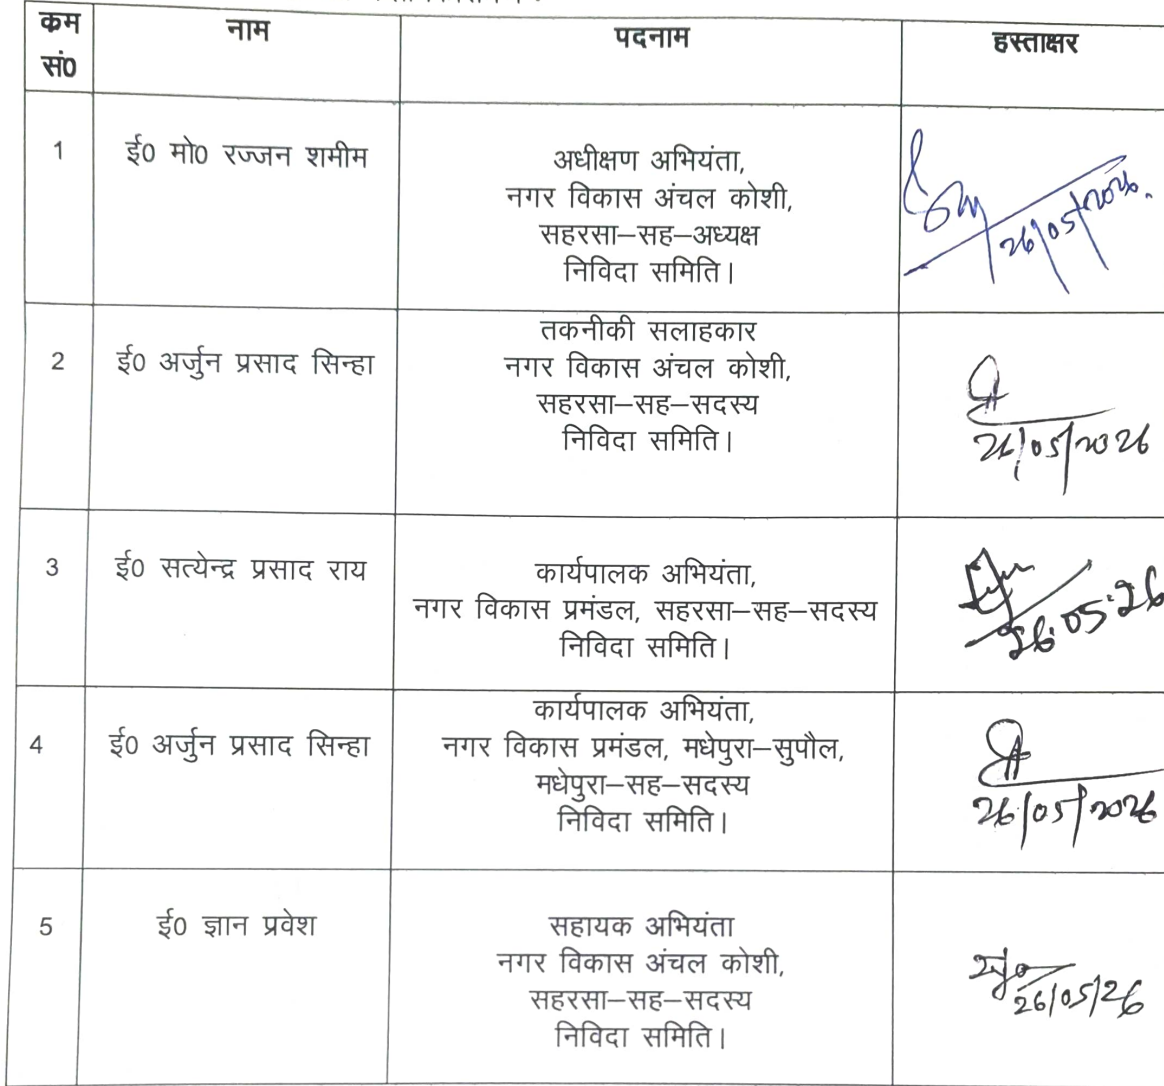 कम सं0
नाम
पदनाम
हस्ताक्षर
1
ई0 मो0 रज्जन शमीम
अधीक्षण अभियंता,
नगर विकास अंचल कोशी,
सहरसा–सह–अध्यक्ष
निविदा समिति।
26/05/2026.
2
ई0 अर्जुन प्रसाद सिन्हा
तकनीकी सलाहकार
नगर विकास अंचल कोशी,
सहरसा–सह–सदस्य
निविदा समिति।
26/05/2026
3
ई0 सत्येन्द्र प्रसाद राय
कार्यपालक अभियंता,
नगर विकास प्रमंडल, सहरसा–सह–सदस्य
निविदा समिति।
26.05.26
4
ई0 अर्जुन प्रसाद सिन्हा
कार्यपालक अभियंता,
नगर विकास प्रमंडल, मधेपुरा–सुपौल,
मधेपुरा–सह–सदस्य
निविदा समिति।
26/05/2026
5
ई0 ज्ञान प्रवेश
सहायक अभियंता
नगर विकास अंचल कोशी,
सहरसा–सह–सदस्य
निविदा समिति।
26/05/26